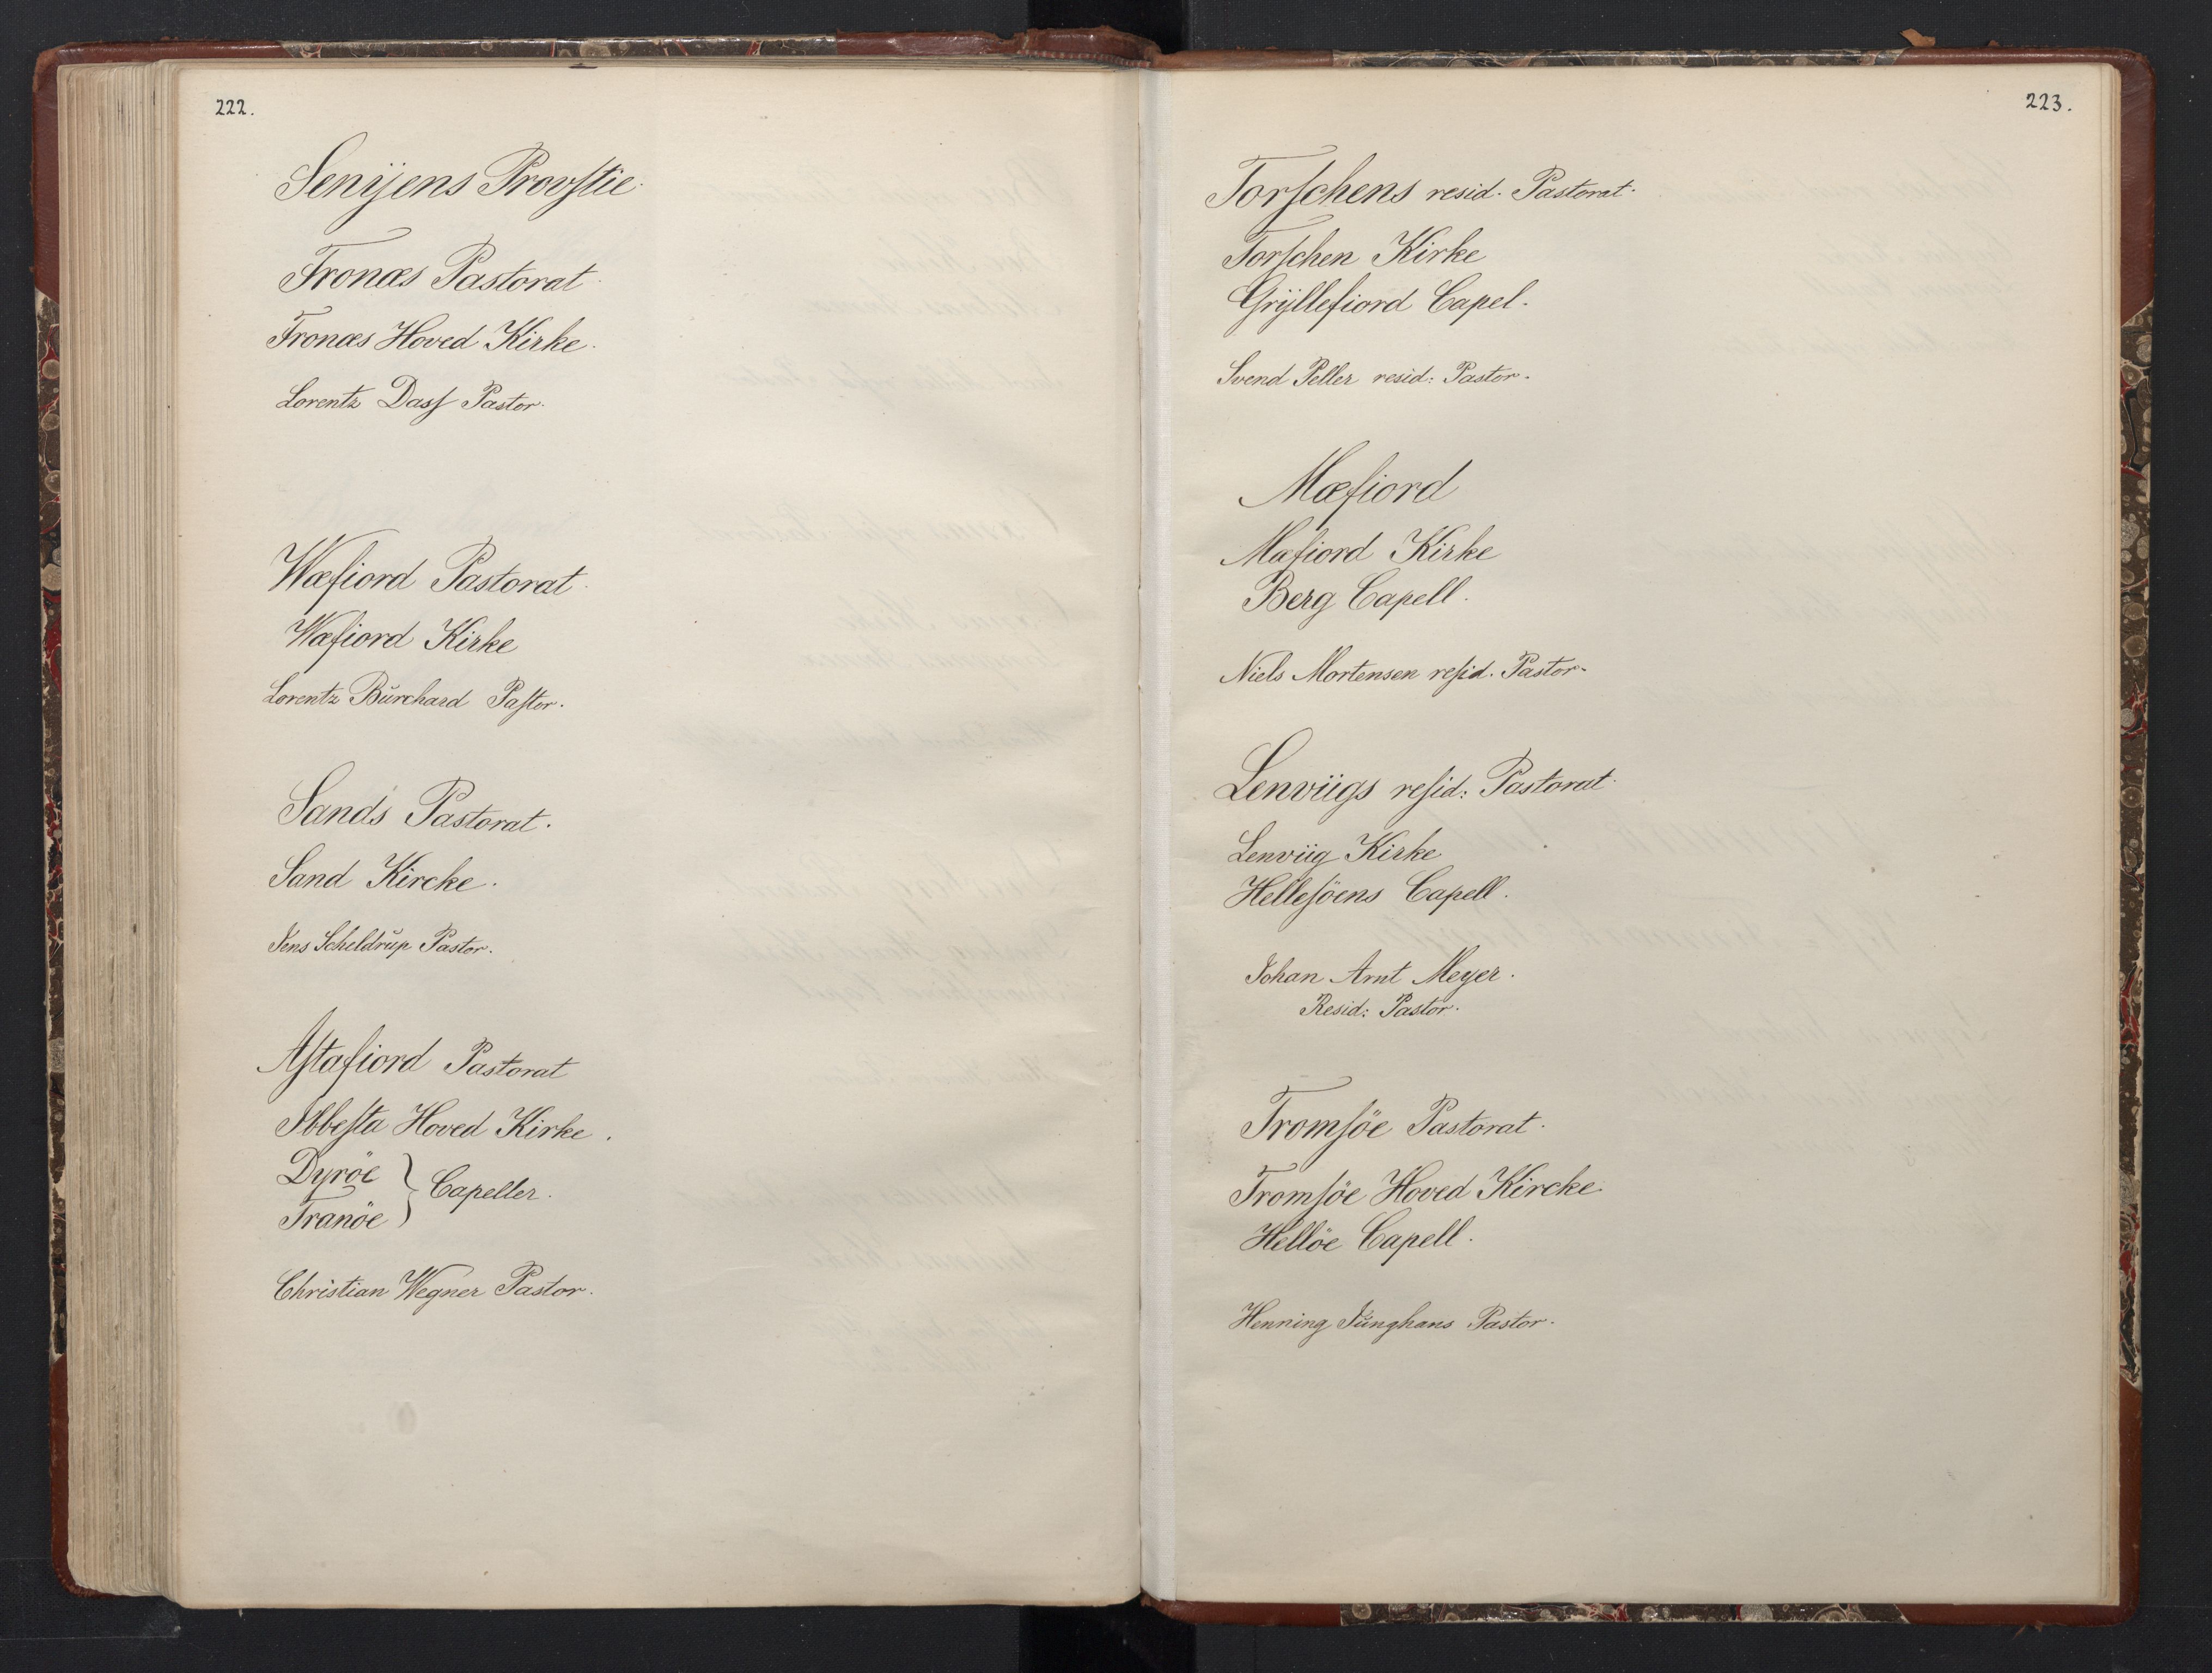 222.
Senÿens Provſtie.
Tronæs Pastorat.
Tronæs Hoved Kirke.
Lorentz Dasſ Pastor.
Wæfiord Pastorat.
Wæfiord Kirke
Lorentz Bŭrchard Paſtor.
Sands Pastorat.
Sand Kircke.
Jens Scheldrŭp Pastor.
Aſtafiord Pastorat
Ibbeſta Hoved Kirke.
Dyröe
Tranöe } Capeller.
Christian Wegner Pastor.
223.
Torſchens resid. Pastorat.
Torſchen Kirke
Grÿllefiord Capel.
Svend Peller resid: Pastor.
Mæfiord
Mæfiord Kirke
Berg Capell.
Niels Mortensen reſid. Pastor.
Lenviigs reſid: Pastorat.
Lenviig Kirke
Helleſöens Capell.
Johan Arnt Meyer.
Resid: Pastor.
Tromſöe Pastorat.
Tromſöe Hoved Kircke.
Hellöe Capell.
Henning Jŭnghans Pastor.